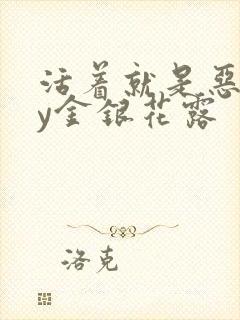 活着就是恶
y金银花露
洛克